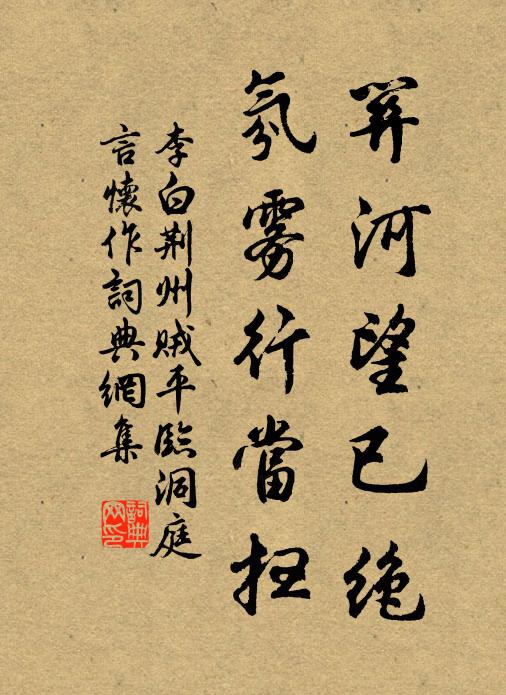 关河望已绝
氛雾行當扫
李白荆州贼平臨洞庭
言懷作詞典網集
詞典
网印